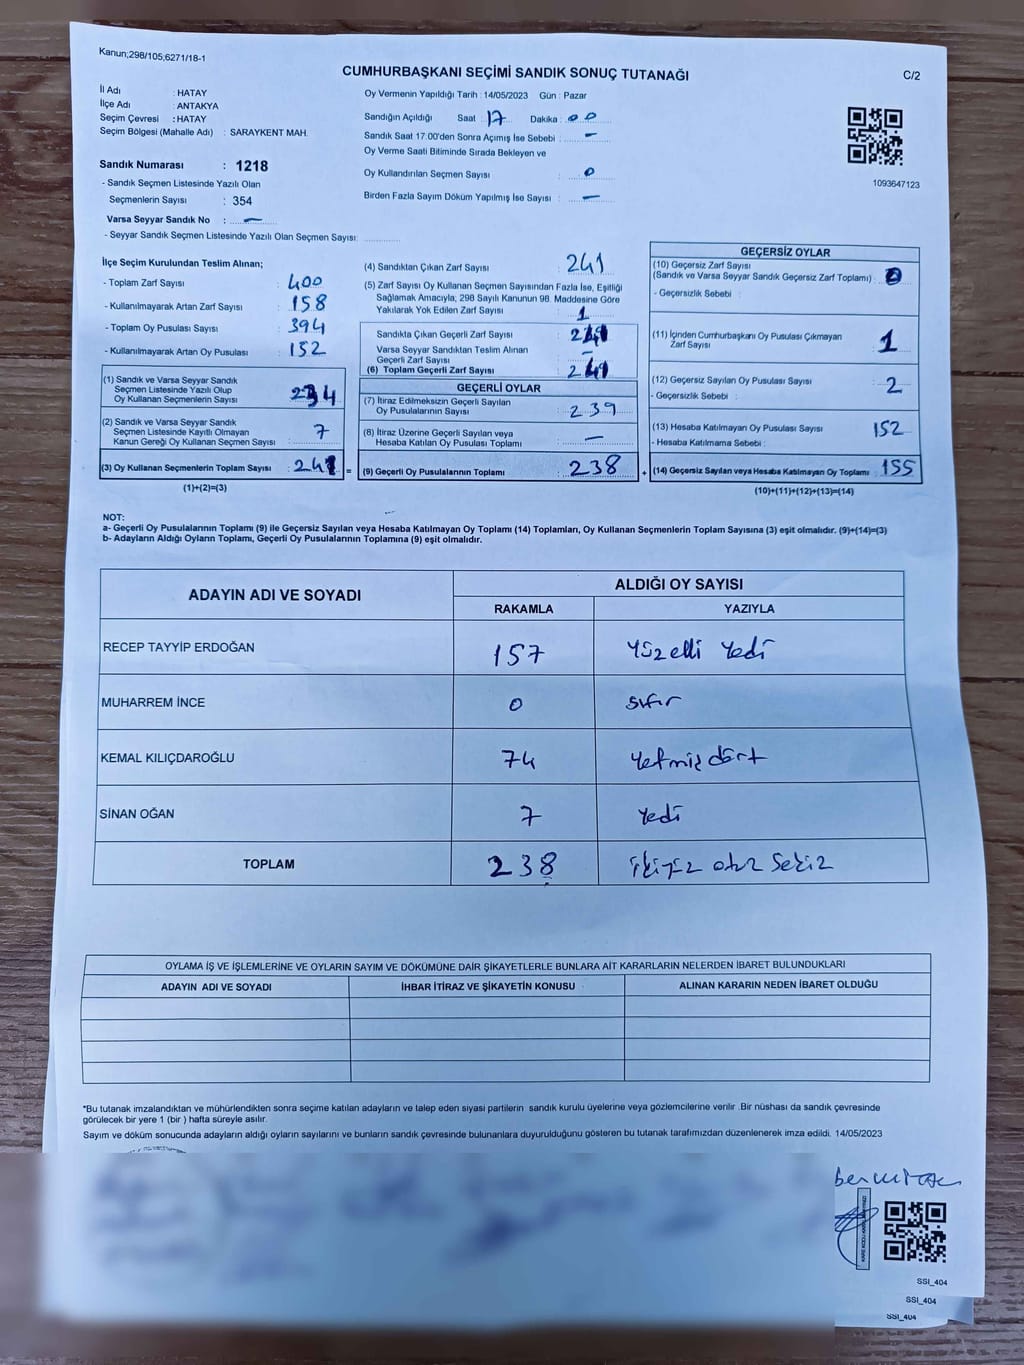 Kanun;298/105;6271/18-1
CUMHURBAŞKANI SEÇİMİ SANDIK SONUÇ TUTANAĞI
C/2
İl Adı : HATAY
İlçe Adı : ANTAKYA
Seçim Çevresi : HATAY
Seçim Bölgesi (Mahalle Adı) : SARAYKENT MAH.
Sandık Numarası : 1218
- Sandık Seçmen Listesinde Yazılı Olan
Seçmenlerin Sayısı : 354
Varsa Seyyar Sandık No : —
- Seyyar Sandık Seçmen Listesinde Yazılı Olan Seçmen Sayısı:
Oy Vermenin Yapıldığı Tarih : 14/05/2023 Gün : Pazar
Sandığın Açıldığı Saat 17 Dakika : 00
Sandık Saat 17:00'den Sonra Açımış İse Sebebi : —
Oy Verme Saati Bitiminde Sırada Bekleyen ve
Oy Kullandırılan Seçmen Sayısı : 0
Birden Fazla Sayım Döküm Yapılmış İse Sayısı : —
1093647123
İlçe Seçim Kurulundan Teslim Alınan;
- Toplam Zarf Sayısı : 400
- Kullanılmayarak Artan Zarf Sayısı : 158
- Toplam Oy Pusulası Sayısı : 394
- Kullanılmayarak Artan Oy Pusulası : 152
(1) Sandık ve Varsa Seyyar Sandık
Seçmen Listesinde Yazılı Olup
Oy Kullanan Seçmenlerin Sayısı : 234
(2) Sandık ve Varsa Seyyar Sandık
Seçmen Listesinde Kayıtlı Olmayan
Kanun Gereği Oy Kullanan Seçmen Sayısı : 7
(3) Oy Kullanan Seçmenlerin Toplam Sayısı : 241 =
(1)+(2)=(3)
(4) Sandıktan Çıkan Zarf Sayısı : 241
(5) Zarf Sayısı Oy Kullanan Seçmen Sayısından Fazla İse, Eşitliği
Sağlamak Amacıyla; 298 Sayılı Kanunun 98. Maddesine Göre
Yakılarak Yok Edilen Zarf Sayısı : 1
Sandıkta Çıkan Geçerli Zarf Sayısı : 241
Varsa Seyyar Sandıktan Teslim Alınan
Geçerli Zarf Sayısı : —
(6) Toplam Geçerli Zarf Sayısı : 241
GEÇERLİ OYLAR
(7) İtiraz Edilmeksizin Geçerli Sayılan
Oy Pusulalarının Sayısı : 239
(8) İtiraz Üzerine Geçerli Sayılan veya
Hesaba Katılan Oy Pusulası Toplamı : —
(9) Geçerli Oy Pusulalarının Toplamı : 238 +
GEÇERSİZ OYLAR
(10) Geçersiz Zarf Sayısı
(Sandık ve Varsa Seyyar Sandık Geçersiz Zarf Toplamı) : 0
- Geçersizlik Sebebi :
(11) İçinden Cumhurbaşkanı Oy Pusulası Çıkmayan
Zarf Sayısı : 1
(12) Geçersiz Sayılan Oy Pusulası Sayısı : 2
- Geçersizlik Sebebi :
(13) Hesaba Katılmayan Oy Pusulası Sayısı : 152
- Hesaba Katılmama Sebebi :
(14) Geçersiz Sayılan veya Hesaba Katılmayan Oy Toplamı : 155
(10)+(11)+(12)+(13)=(14)
NOT:
a- Geçerli Oy Pusulalarının Toplamı (9) ile Geçersiz Sayılan veya Hesaba Katılmayan Oy Toplamı (14) Toplamları, Oy Kullanan Seçmenlerin Toplam Sayısına (3) eşit olmalıdır. (9)+(14)=(3)
b- Adayların Aldığı Oyların Toplamı, Geçerli Oy Pusulalarının Toplamına (9) eşit olmalıdır.
ADAYIN ADI VE SOYADI
ALDIĞI OY SAYISI
RAKAMLA YAZIYLA
RECEP TAYYİP ERDOĞAN 157 Yüzelli Yedi
MUHARREM İNCE 0 sıfır
KEMAL KILIÇDAROĞLU 74 Yetmiş dört
SİNAN OĞAN 7 Yedi
TOPLAM 238 ikiyüz otuz Sekiz
OYLAMA İŞ VE İŞLEMLERİNE VE OYLARIN SAYIM VE DÖKÜMÜNE DAİR ŞİKAYETLERLE BUNLARA AİT KARARLARIN NELERDEN İBARET BULUNDUKLARI
ADAYIN ADI VE SOYADI İHBAR İTİRAZ VE ŞİKAYETİN KONUSU ALINAN KARARIN NEDEN İBARET OLDUĞU
*Bu tutanak imzalandıktan ve mühürlendikten sonra seçime katılan adayların ve talep eden siyasi partilerin sandık kurulu üyelerine veya gözlemcilerine verilir .Bir nüshası da sandık çevresinde
görülecek bir yere 1 (bir ) hafta süreyle asılır.
Sayım ve döküm sonucunda adayların aldığı oyların sayılarını ve bunların sandık çevresinde bulunanlara duyurulduğunu gösteren bu tutanak tarafımızdan düzenlenerek imza edildi. 14/05/2023
SSI_404
SSI_404
SSI_404